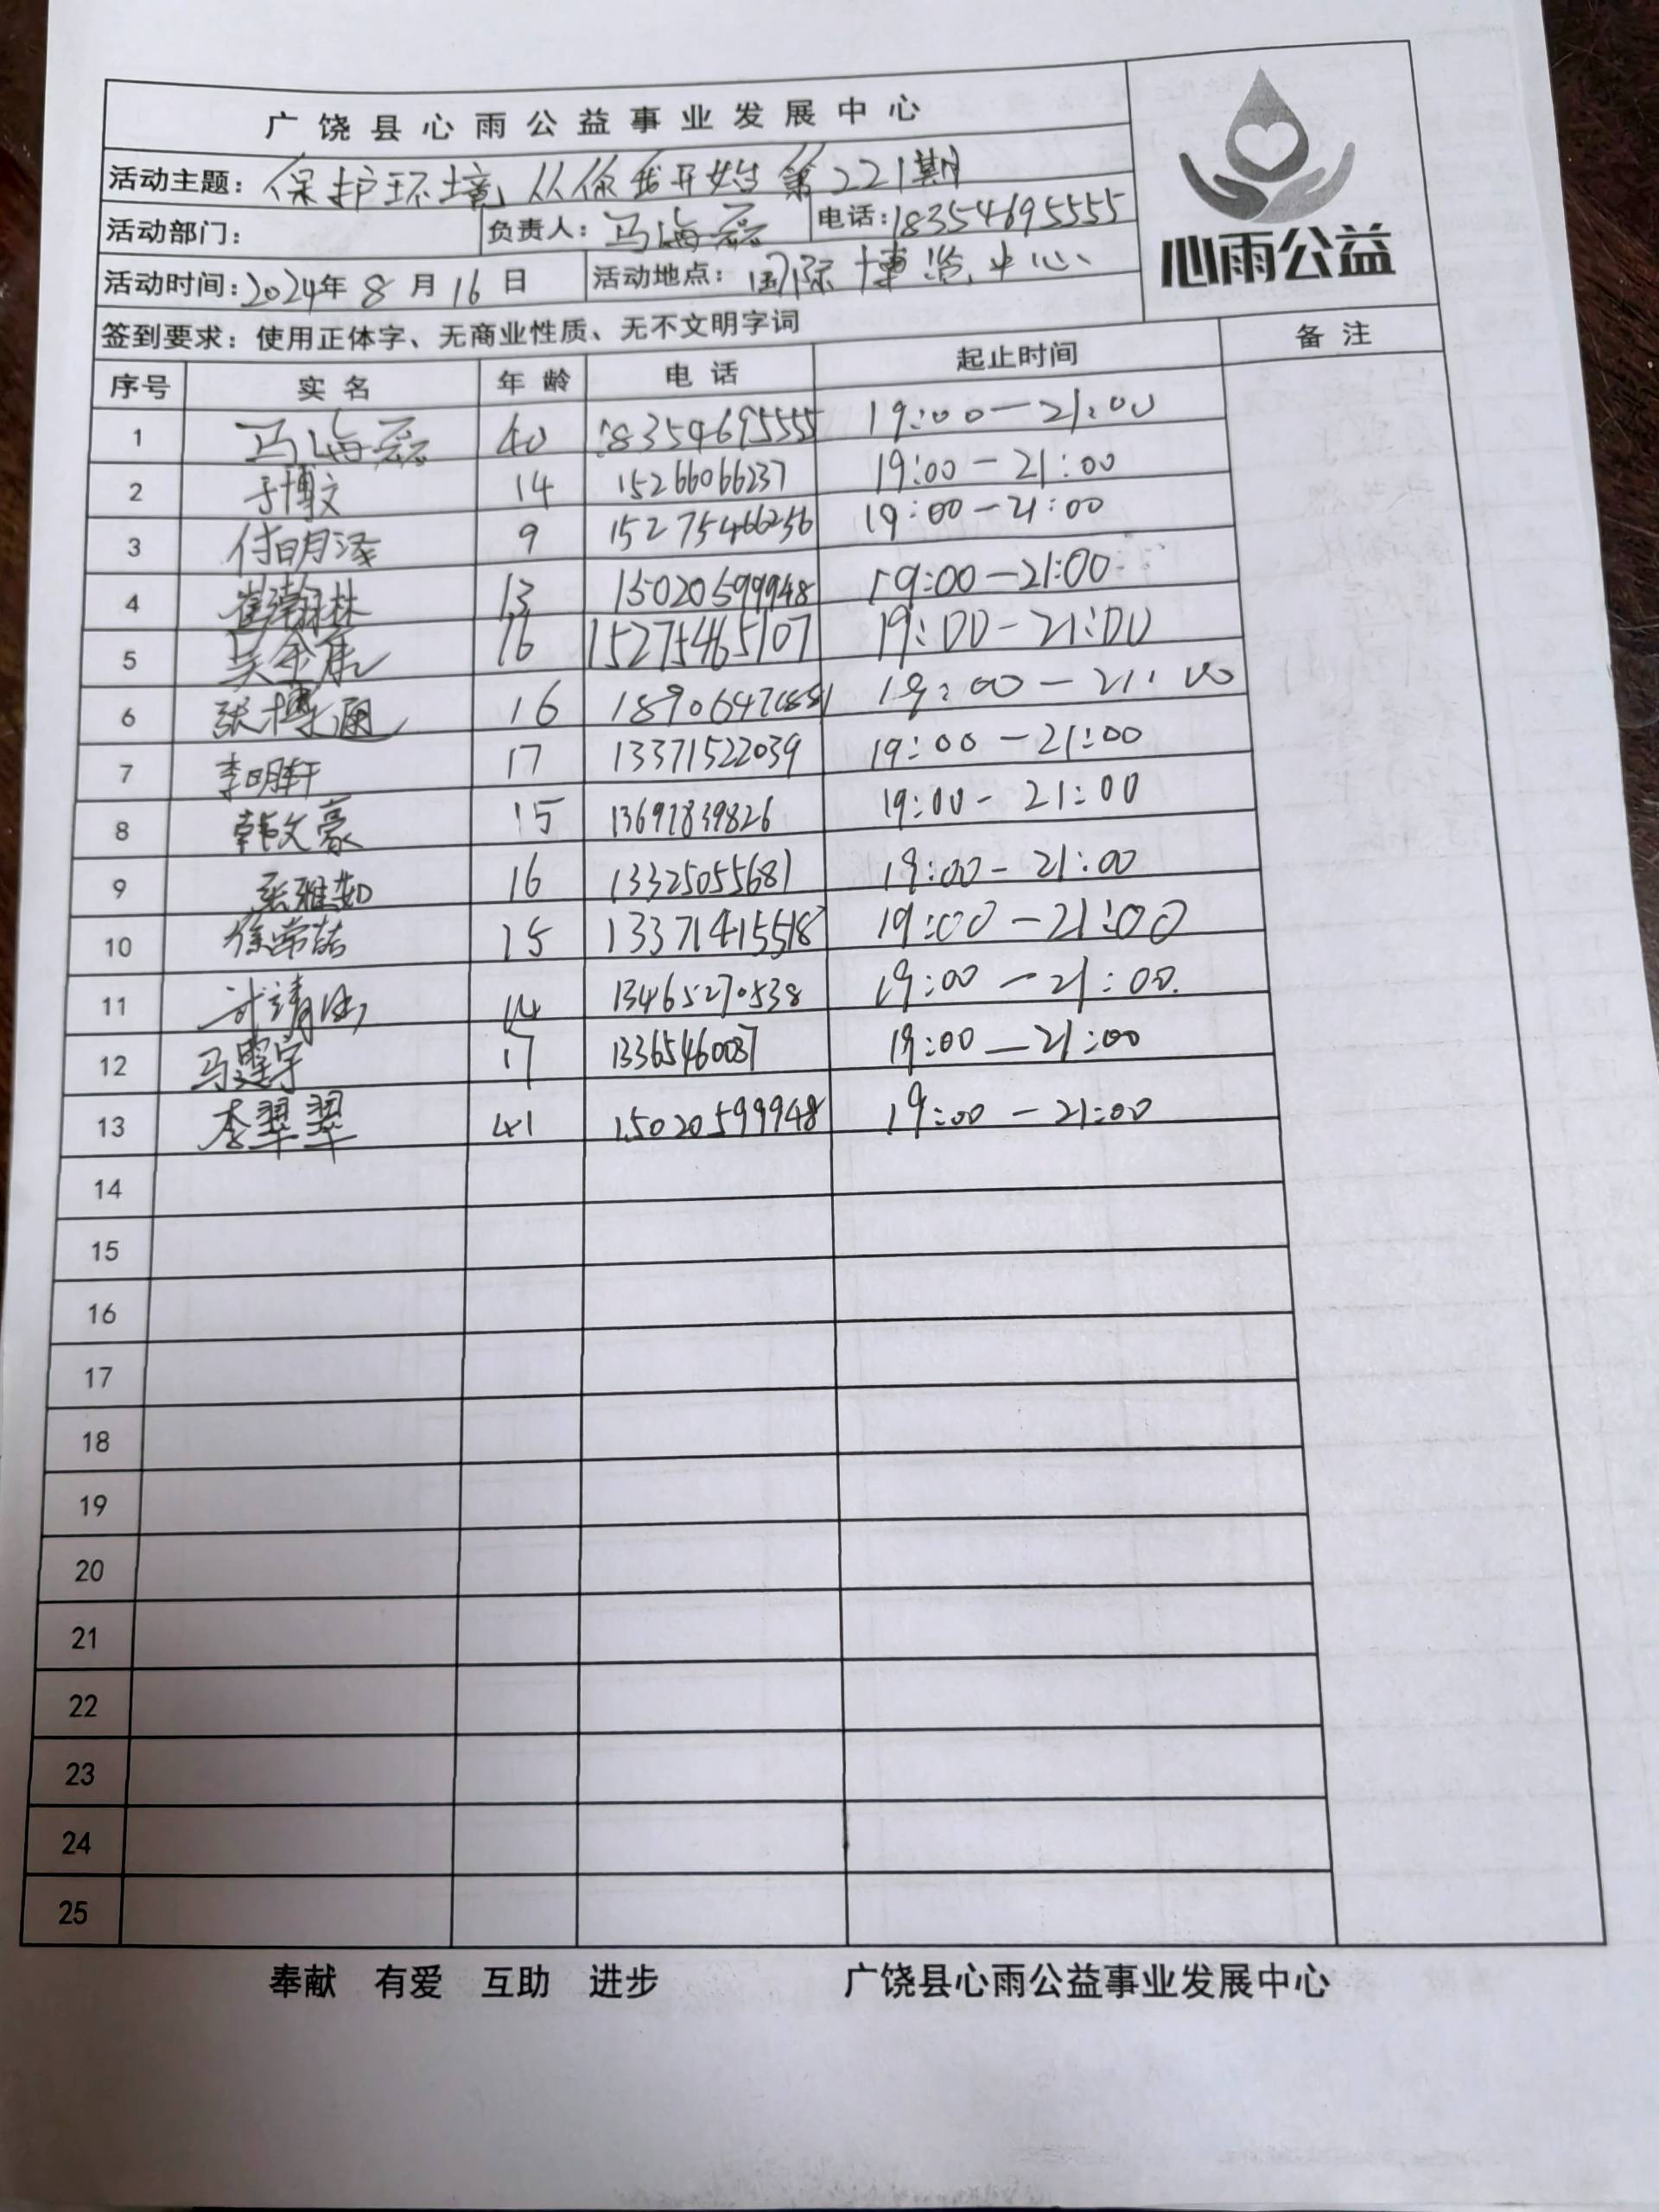 广饶县心雨公益事业发展中心
活动主题：保护环境，从你我开始第221期
活动部门： 负责人：马海磊 电话：18354695555
活动时间：2024年8月16日 活动地点：国际博览中心
心雨公益
签到要求：使用正体字、无商业性质、无不文明字词
序号 实名 年龄 电话 起止时间 备注
1 马海磊 40 18354695555 19:00—21:00
2 于博文 14 15266066237 19:00—21:00
3 付明泽 9 15275466256 19:00—21:00
4 崔瀚林 13 15020599948 19:00—21:00
5 吴金康 16 15275465107 19:00—21:00
6 张博通 16 19:00—21:00
7 李明轩 17 13371522039 19:00—21:00
8 韩文豪 15 13697839826 19:00—21:00
9 张雅茹 16 13325055681 19:00—21:00
10 徐常喆 15 13371415518 19:00—21:00
11 14 13465270538 19:00—21:00.
12 马建宇 17 13365460087 19:00—21:00
13 李翠翠 41 15020599948 19:00—21:00
14
15
16
17
18
19
20
21
22
23
24
25
奉献 有爱 互助 进步 广饶县心雨公益事业发展中心